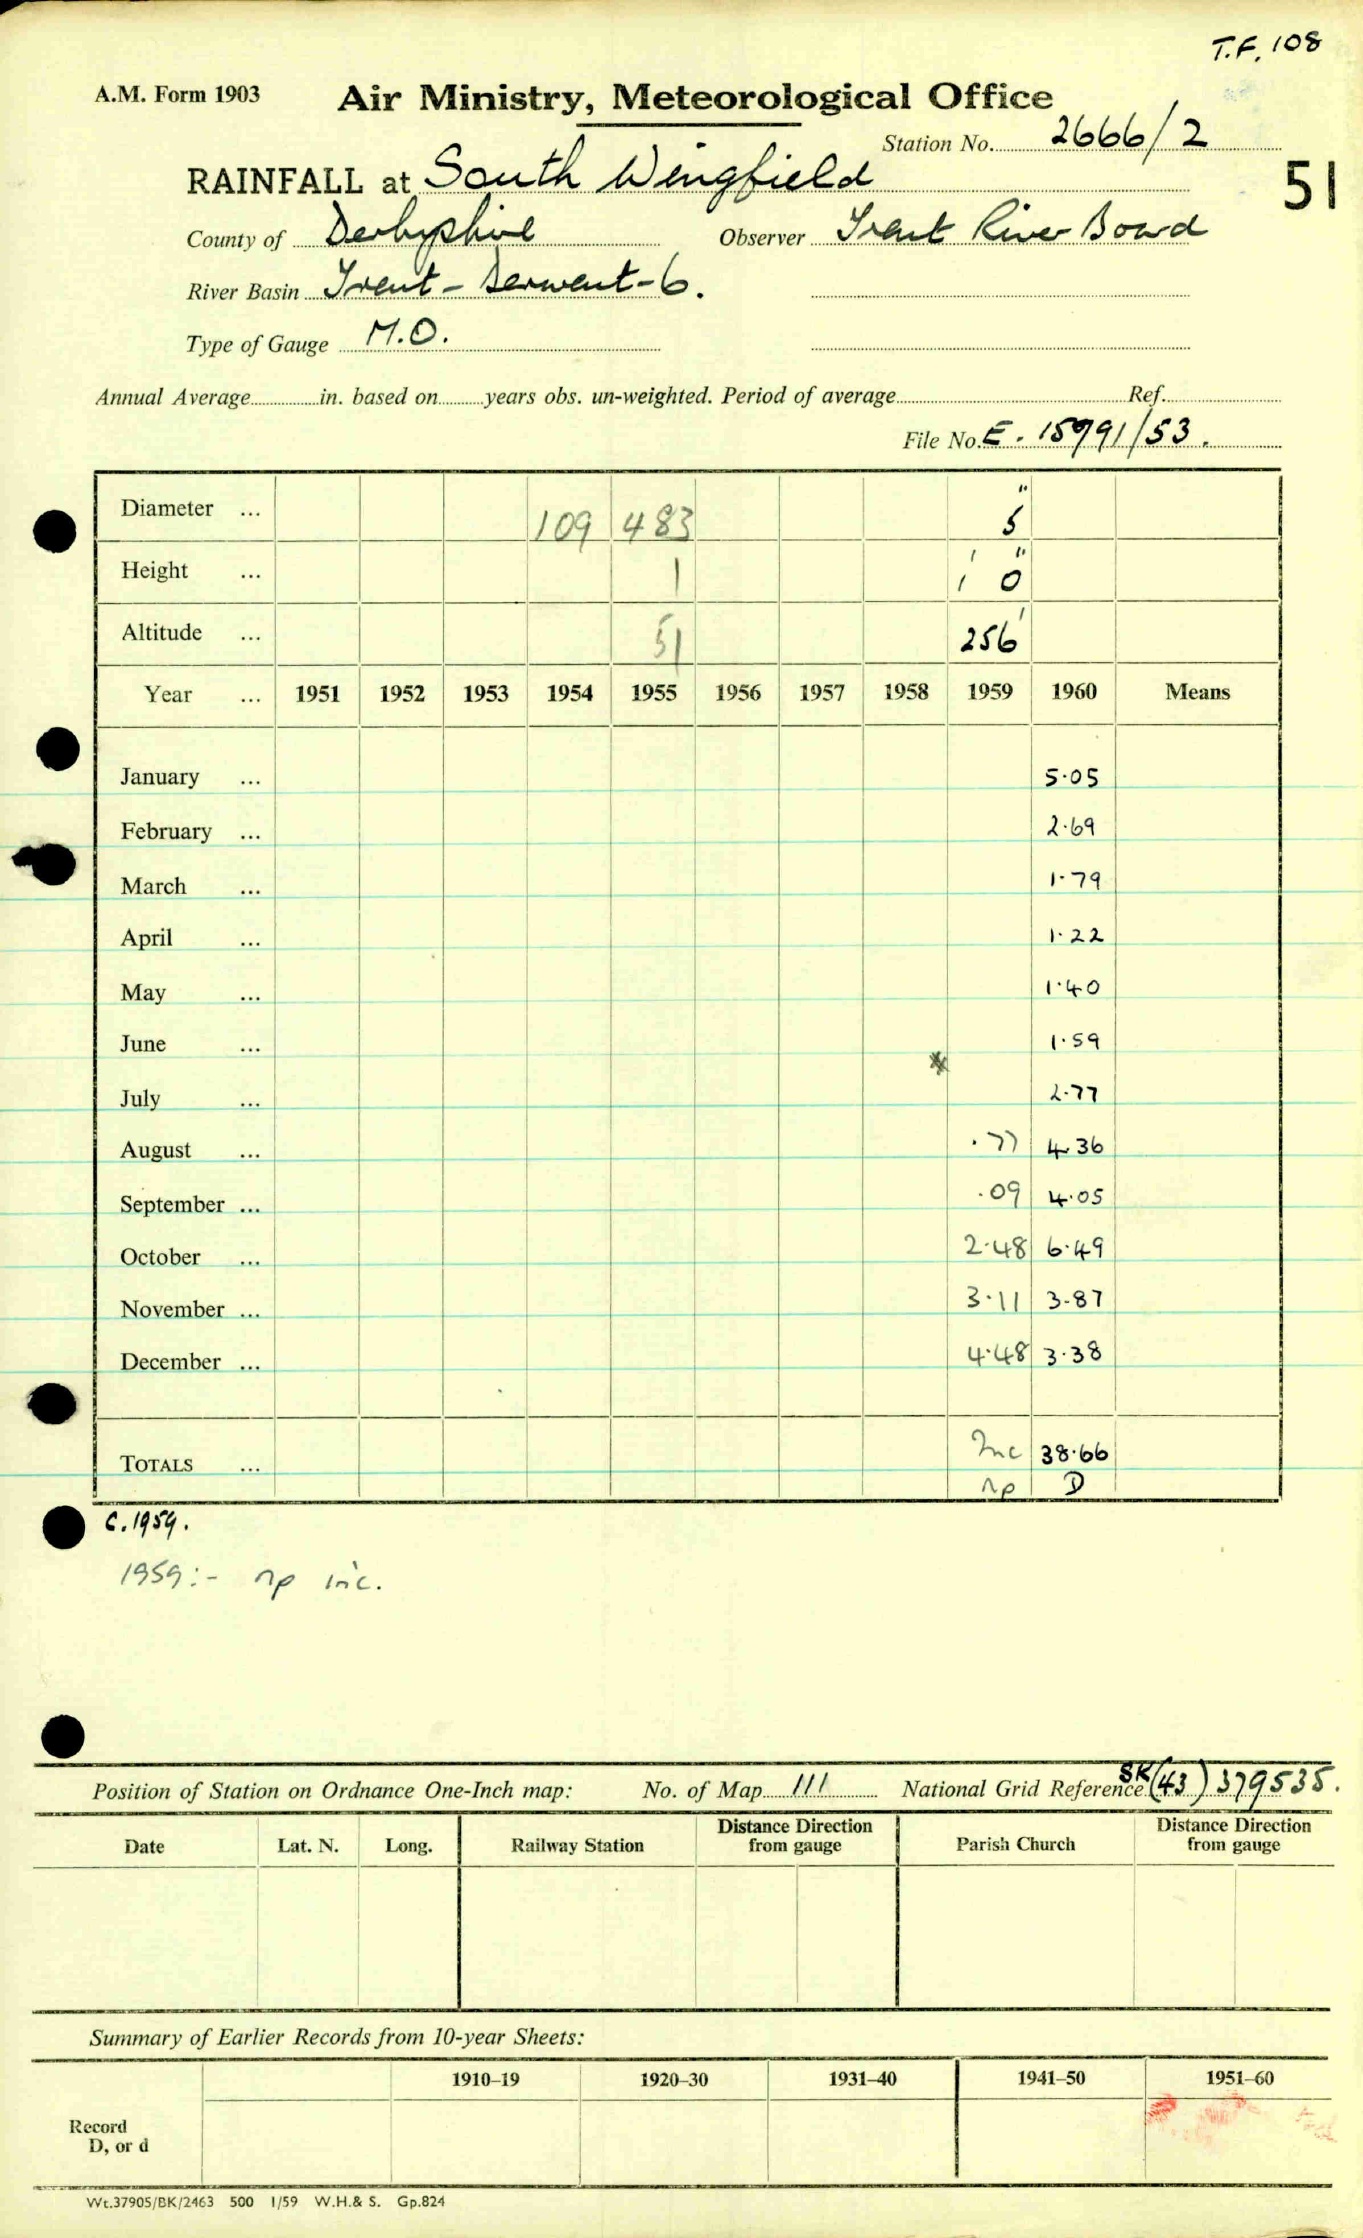 T.F. 108
A.M. Form 1903 Air Ministry, Meteorological Office
Station No. 2666/2
RAINFALL at South Wingfield 51
County of Derbyshire Observer Trent River Board
River Basin Trent - Derwent - 6.
Type of Gauge M.O.
Annual Average in. based on years obs. un-weighted. Period of average Ref.
File No. E. 15991/53.
Diameter ... 109 483 5"
Height ... 1 1' 0"
Altitude ... 51 256'
Year ... 1951 1952 1953 1954 1955 1956 1957 1958 1959 1960 Means
January ... 5.05
February ... 2.69
March ... 1.79
April ... 1.22
May ... 1.40
June ... 1.59
July ... 2.77
August ... .77 4.36
September ... .09 4.05
October ... 2.48 6.49
November ... 3.11 3.87
December ... 4.48 3.38
TOTALS ... Inc 38.66
np D
C. 1959.
1959:- np inc.
Position of Station on Ordnance One-Inch map: No. of Map 111 National Grid Reference SK (43) 379535.
Date Lat. N. Long. Railway Station Distance Direction from gauge Parish Church Distance Direction from gauge
Summary of Earlier Records from 10-year Sheets:
1910–19 1920–30 1931–40 1941–50 1951–60
Record
D, or d
Wt.37905/BK/2463 500 1/59 W.H.& S. Gp.824